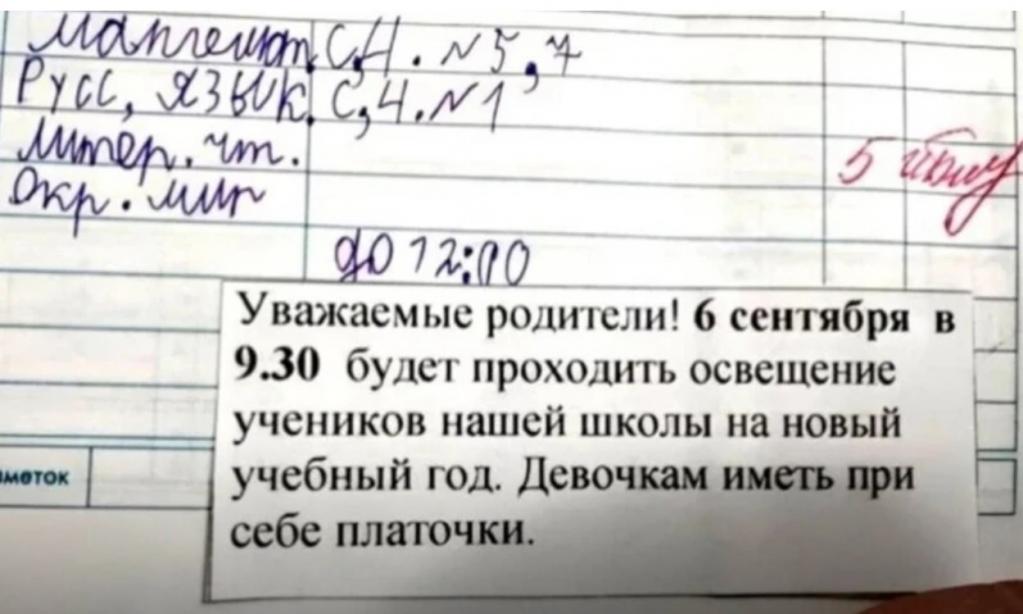 Математ. С,4. №5,7
Русс, язык. С,4. №1
Литер. чт.
5
Окр. мир
до 12:00
Уважаемые родители! 6 сентября в
9.30 будет проходить освещение
учеников нашей школы на новый
учебный год. Девочкам иметь при
себе платочки.
меток